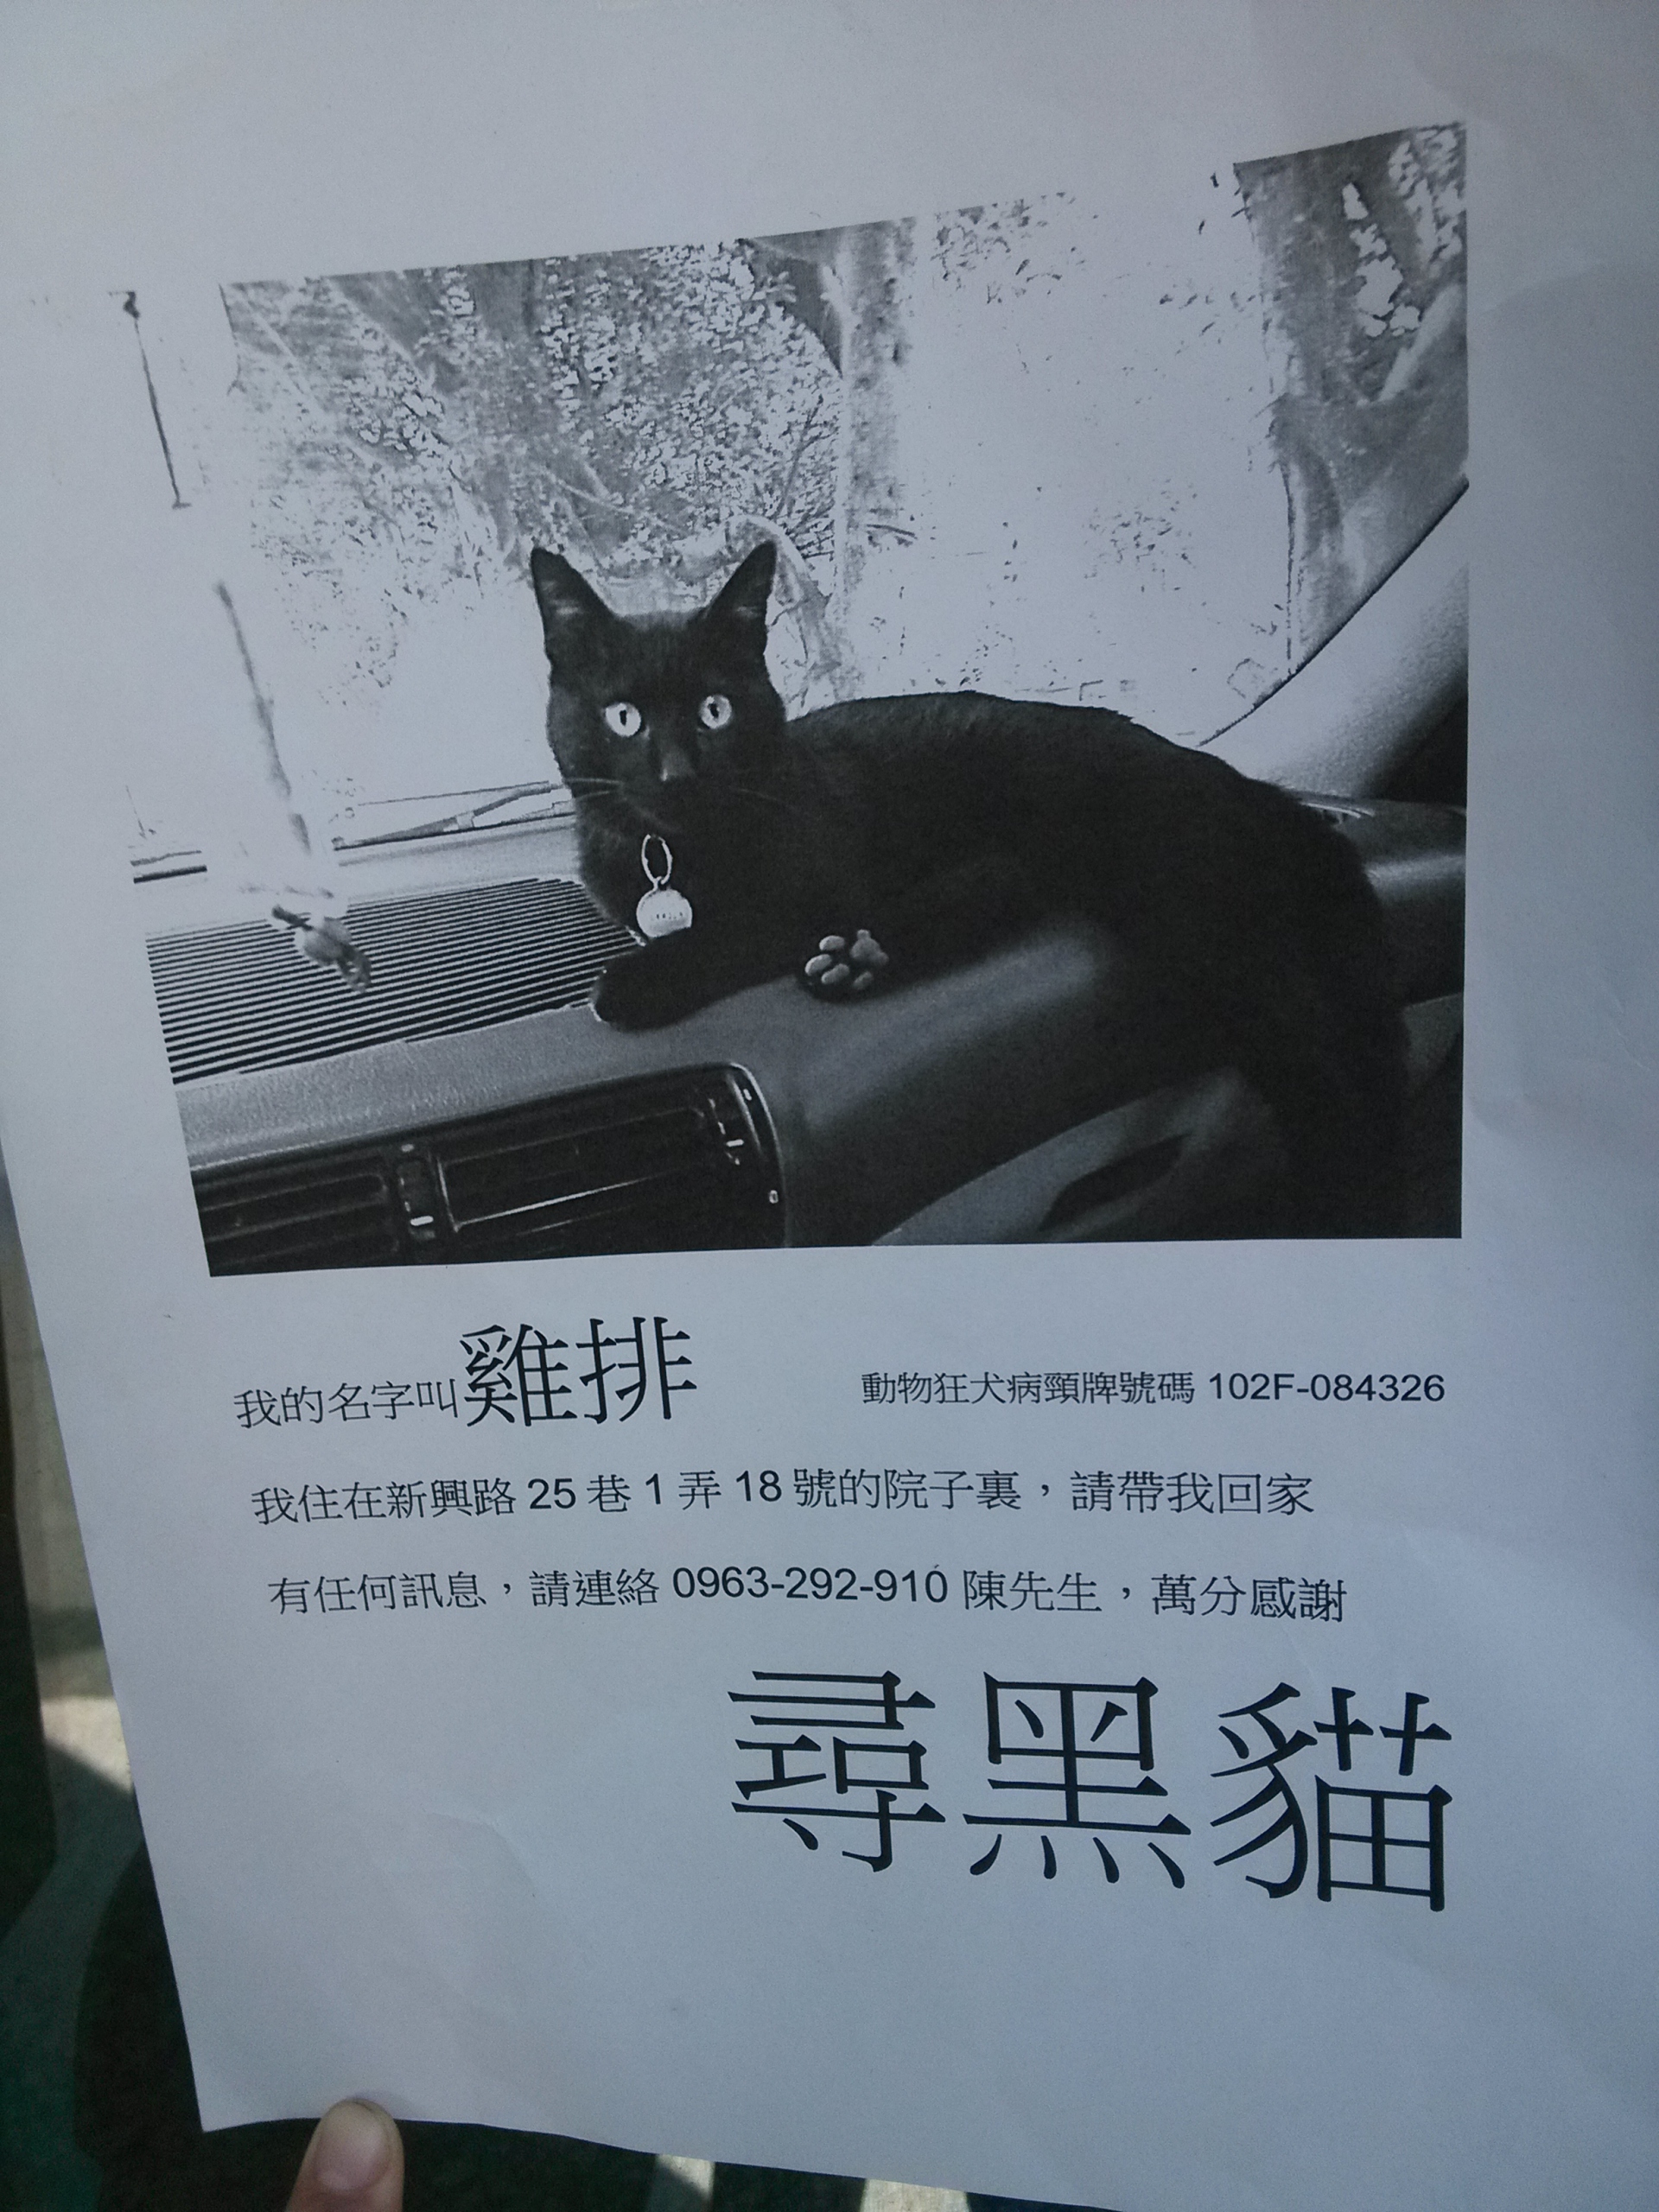 我的名字叫雞排 動物狂犬病頸牌號碼 102F-084326
我住在新興路 25 巷 1 弄 18 號的院子裏，請帶我回家
有任何訊息，請連絡 0963-292-910 陳先生，萬分感謝
尋黑貓